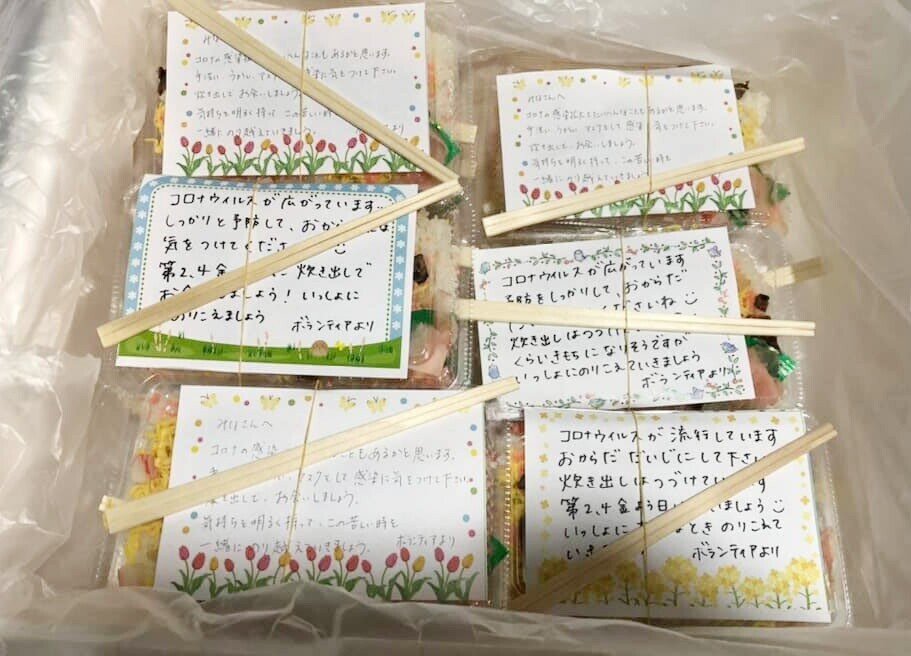 コロナの感染拡大でたいへんなこともあるかと思います。
手洗い、うがい、マスク 感染に気をつけて下さい。
炊き出しで、お会いしましょう。
気持ちを明るく持って、この苦しい時
一緒にのり越えていきましょう。
より
みなさんへ
コロナの感染拡大でたいへんなこともあるかと思います。
手洗い、うがい、マスクをして感染に気をつけて下さい。
炊き出しで、お会いしましょう。
気持ちを明るく持って、この苦しい時も
一緒にのり越えて
コロナウイルスが広がっています
しっかりと予防して、おから
気をつけてくださ
第2、4金 に 炊き出しで
お会 しましょう! いっしょに
のりこえましょう
ボランティアより
コロナウイルスが広がっています
予防をしっかりして、おからだ
さいね
炊き出しはつづけて
くらいきもちになりそうですが
いっしょにのりこえていきましょう
ボランティアより
みなさんへ
コロナの感染 こともあるかと思います。
マスクをして 感染に気をつけて下さい。
炊き出しで、お会いしましょう。
気持ちを明るく持って、この苦しい時も
一緒にのり越えていきましょう。
ボランティアより
コロナウイルスが 流行しています
おからだ だいじにして下さい
炊き出しはつづけています
第2、4金よう日 いましょう
いっしょに なとき のりこえて
いき
ボランティアより